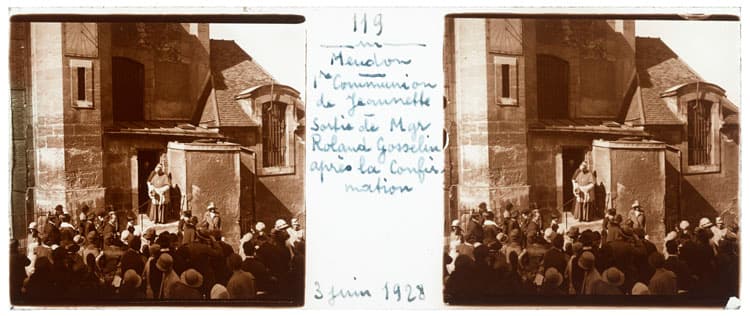 119
Meudon
1re Communion
de Jeannette
Sortie de Mgr
Roland Gosselin
après la Confir-
mation
3 juin 1928